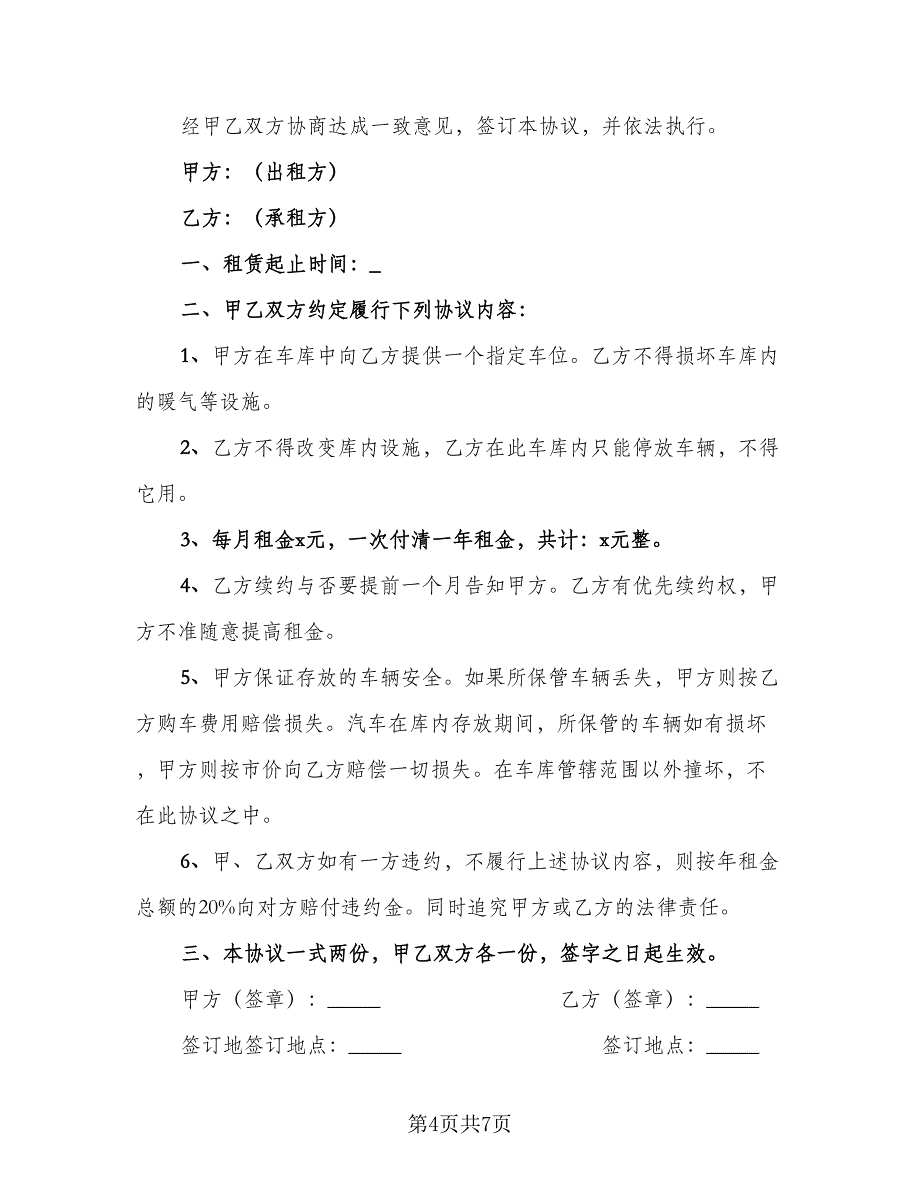 经甲乙双方协商达成一致意见，签订本协议，并依法执行。
甲方：（出租方）
乙方：（承租方）
一、租赁起止时间：_
二、甲乙双方约定履行下列协议内容：
1、甲方在车库中向乙方提供一个指定车位。乙方不得损坏车库内
的暖气等设施。
2、乙方不得改变库内设施，乙方在此车库内只能停放车辆，不得
它用。
3、每月租金x元，一次付清一年租金，共计：x元整。
4、乙方续约与否要提前一个月告知甲方。乙方有优先续约权，甲
方不准随意提高租金。
5、甲方保证存放的车辆安全。如果所保管车辆丢失，甲方则按乙
方购车费用赔偿损失。汽车在库内存放期间，所保管的车辆如有损坏
，甲方则按市价向乙方赔偿一切损失。在车库管辖范围以外撞坏，不
在此协议之中。
6、甲、乙双方如有一方违约，不履行上述协议内容，则按年租金
总额的20%向对方赔付违约金。同时追究甲方或乙方的法律责任。
三、本协议一式两份，甲乙双方各一份，签字之日起生效。
甲方（签章）：_____ 乙方（签章）：_____
签订地签订地点：_____ 签订地点：_____
第4页共7页